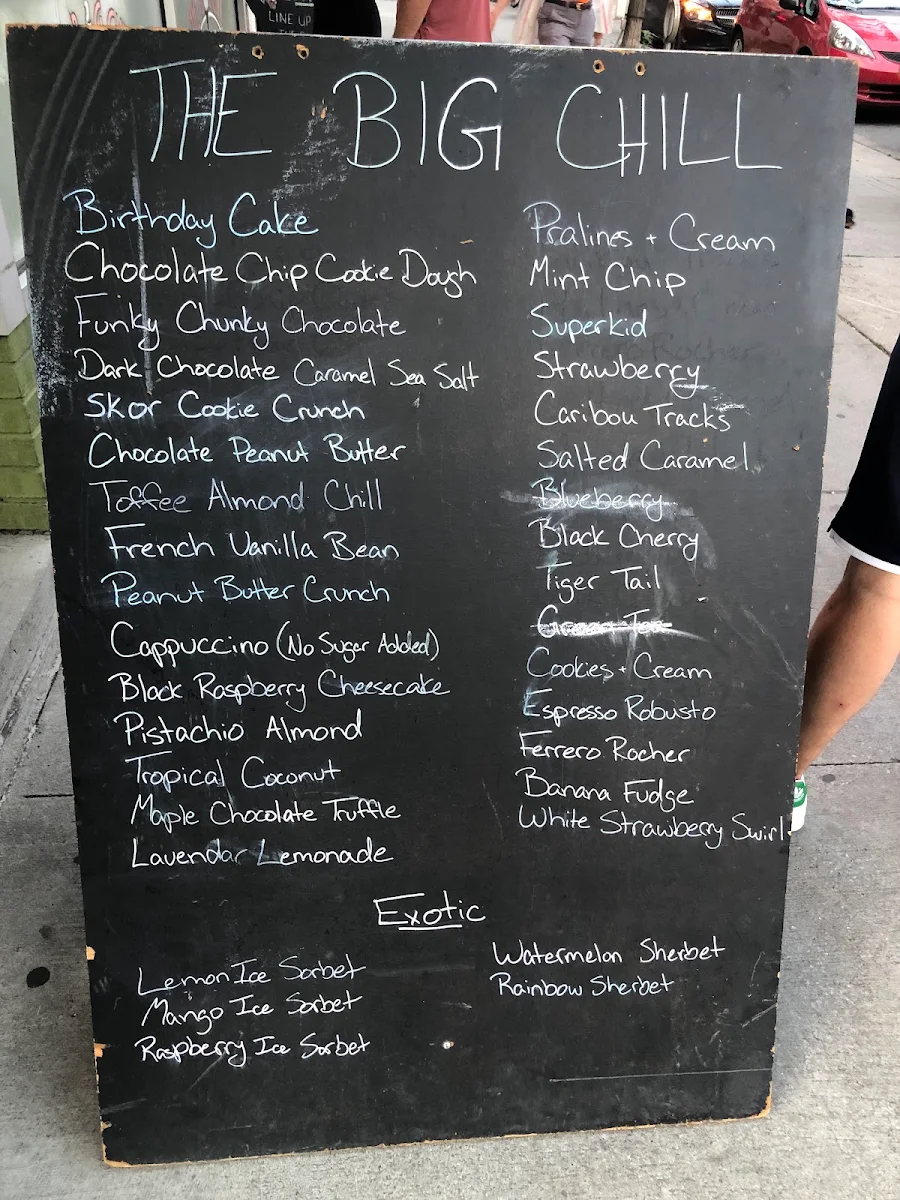 LINE UP
THE BIG CHILL
Birthday Cake
Chocolate Chip Cookie Dough
Funky Chunky Chocolate
Dark Chocolate Caramel Sea Salt
Skor Cookie Crunch
Chocolate Peanut Butter
Toffee Almond Chill
French Vanilla Bean
Peanut Butter Crunch
Cappuccino (No Sugar Added)
Black Raspberry Cheesecake
Pistachio Almond
Tropical Coconut
Maple Chocolate Truffle
Lavendar Lemonade
Pralines + Cream
Mint Chip
Superkid
Strawberry
Caribou Tracks
Salted Caramel
Blueberry
Black Cherry
Tiger Tail
Green Tea
Cookies + Cream
Espresso Robusto
Ferrero Rocher
Banana Fudge
White Strawberry Swirl
Exotic
Lemon Ice Sorbet
Mango Ice Sorbet
Raspberry Ice Sorbet
Watermelon Sherbet
Rainbow Sherbet